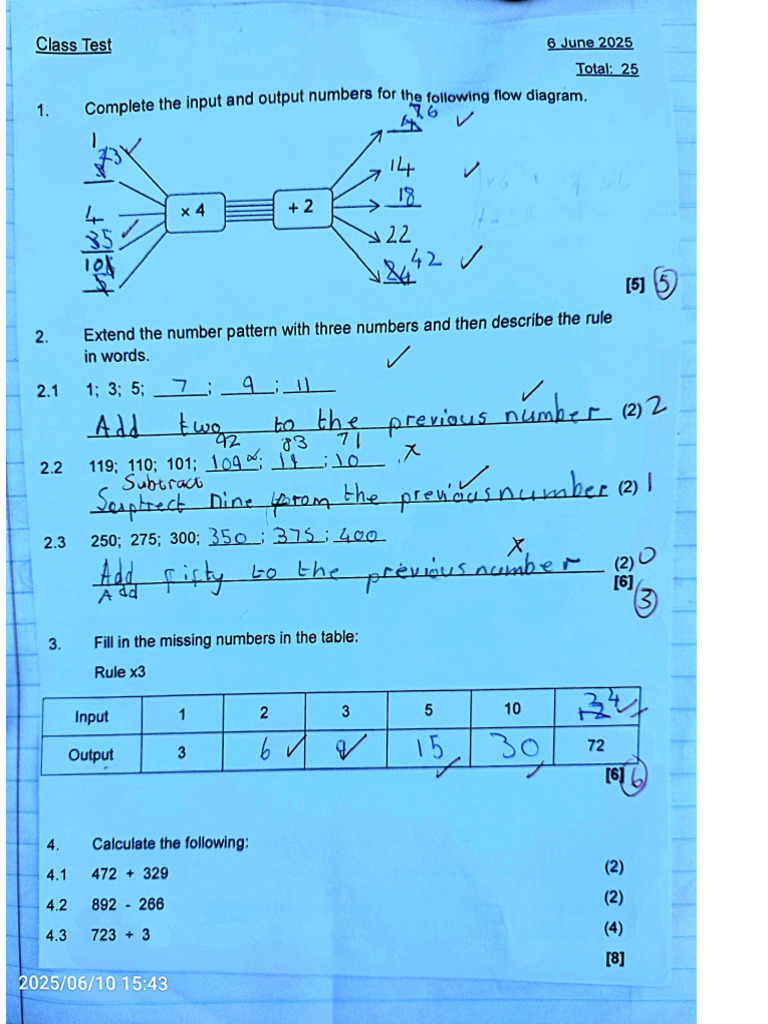 Class Test
6 June 2025
Total: 25
1. Complete the input and output numbers for the following flow diagram.
1
3
4
5
10
× 4
+ 2
6
14
18
22
42
[5] 5
2. Extend the number pattern with three numbers and then describe the rule
in words.
2.1 1; 3; 5; 7 ; 9 ; 11
Add two to the previous number (2) 2
92 83 71
2.2 119; 110; 101; 109 ; 11 ; 10
Subtract
Septrect nine from the previous number (2) 1
2.3 250; 275; 300; 350 ; 375 ; 400
Add fifty to the previous number (2) 0
Add
[6]
3
3. Fill in the missing numbers in the table:
Rule x3
Input 1 2 3 5 10 24
Output 3 6 9 15 30 72
[6] 6
4. Calculate the following:
4.1 472 + 329 (2)
4.2 892 - 266 (2)
4.3 723 ÷ 3 (4)
[8]
2025/06/10 15:43